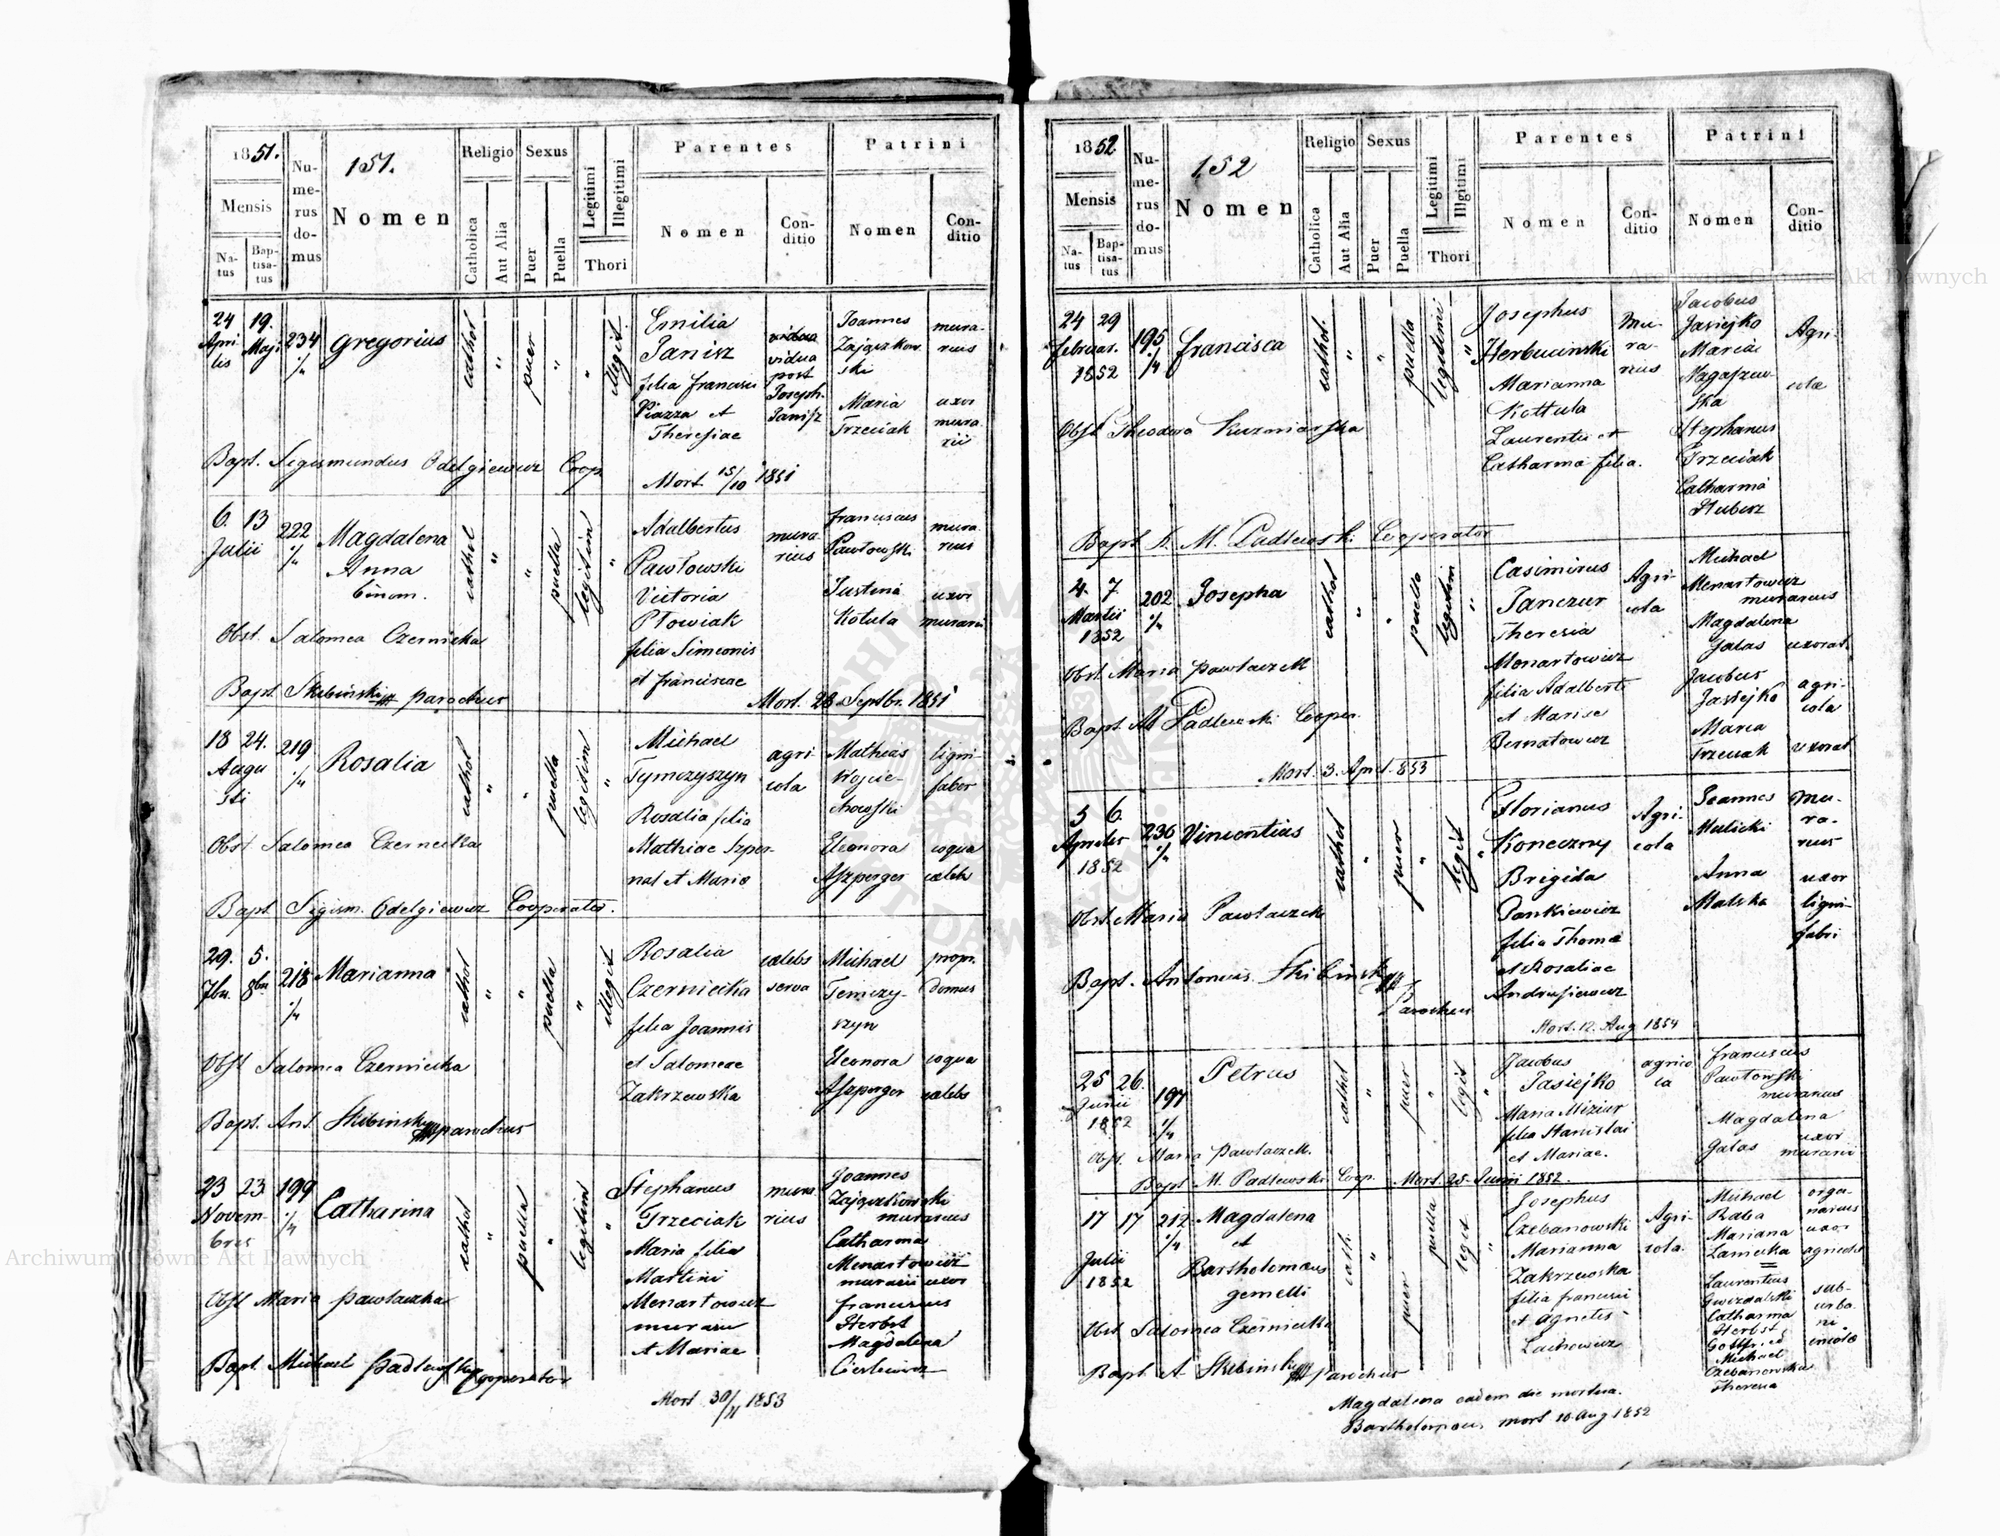 1851.
151.
Mensis
Natus
Baptisatus
Numerus domus
Nomen
Religio
Catholica
Aut Alia
Sexus
Puer
Puella
Legitimi
Illegitimi
Thori
Parentes
Nomen
Conditio
Patrini
Nomen
Conditio
24 19.
Aprilis Maji
234
1/4
Gregorius
cathol
"
puer
"
"
illegit.
Emilia
Janisz
filia Francisci
Piazza et
Theresiae
vidua
post
Joseph.
Janisz
Joannes
Zajączkow
ski
Maria
Trzeciak
mura-
rius
uxor
mura
rii
Bapt. Sigismundus Odelgiewicz Coop.
Mort 15/10 1851
6. 13
Julii
222
1/4
Magdalena
Anna
binom.
cathol
"
"
puella
legitim
"
Adalbertus
Pawłowski
Victoria
Płowiak
filia Simeonis
et Franciscae
mura
rius
Franciscus
Pawłowski
Justina
Kotula
mura
rius
uxor
murarii
Obst. Salomea Czernicka
Bapt. Skibiński parochus
Mort. 28 Septbr. 1851
18 24.
Augu
sti
219
1/4
Rosalia
cathol
"
"
puella
legitim
"
Michael
Tymczyszyn
Rosalia filia
Mathiae Szper-
nal et Maria
agri
cola
Mathias
Wojcie-
chowski
Eleonora
Aszperger
ligni-
faber
coqua
caeleb
Obst. Salomea Czernicka
Bapt. Sigism. Odelgiewicz Cooperator.
29. 5.
7br. 8br
218
1/4
Marianna
cathol
"
"
puella
"
illegit
Rosalia
Czernicka
filia Joannis
et Salomeae
Zakrzewska
caelebs
serva
Michael
Temczy-
szyn
Eleonora
Aszperger
propr.
domus
coqua
caelebs
Obst Salomea Czernicka
Bapt. Ant. Skibinski parochus
23 23
Novem-
bris
199
1/4
Catharina
cathol
"
puella
"
legitim
"
Stephanus
Trzeciak
Maria filia
Martini
Menartowicz
murarii
et Mariae
mura
rius
Joannes
Zajączkowski
murarius
Catharina
Menartowicz
murarii uxor
Franciscus
Herbst
Magdalena
Cieslewicz
Obst Maria Pawlaczka
Bapt. Michael Padlewski Cooperator
Mort 30/11 1853
1852
152
Mensis
Natus
Baptisatus
Numerus domus
Nomen
Religio
Catholica
Aut Alia
Sexus
Puer
Puella
Legitimi
Illgitimi
Thori
Parentes
Nomen
Conditio
Patrini
Nomen
Conditio
24 29
Februar.
1852
195
1/4
Francisca
cathol.
"
"
puella
legitimi
"
Josephus
Herbucinski
Marianna
Kottula
Laurentii et
Catharina filia.
Mu-
ra-
rius
Jacobus
Jasiejko
Maria
Stephanus
Trzeciak
Catharina
Agri-
colae
Obst Theodora Kuzmiarska
Bapt. M. Padlewski Cooperator
4. 7
Martii
1852
202
1/4
Josepha
cathol
"
"
puella
legitim
"
Casimirus
Janczur
Theresia
Menartowicz
filia Adalberti
et Mariae
Bernatowicz
Agri-
cola
Michael
Menartowicz
murarius
Magdalena
Galas uxorat.
Jacobus
Jasiejko
Maria
Trzeciak
agri-
cola
uxorat
Obst Maria Pawlaczek
Bapt. M Padlewski Cooper.
Mort. 3. April. 853
5 6.
Aprilis
1852
236
1/4
Vincentius
cathol
"
puer
"
legit
"
Florianus
Koneczny
Brigida
Pankiewicz
filia Thoma
et Rosaliae
Andrusiewicz
Agri-
cola
Joannes
Malicki
Anna
Malska
Mu-
ra-
rius
uxor
ligni-
fabri
Obst. Maria Pawlaczek
Bapt. Antonius Skibinski
Parochus
Mort. 12. Aug 1854
25 26.
Junii
1852
197
1/4
Petrus
cathol
"
puer
"
legit
"
Jacobus
Jasiejko
Maria Miziur
filia Stanislai
et Mariae.
agrico
la
Franciscus
Pawłowski
murarius
Magdalena
Galas uxor
murarii
Obst. Maria Pawlaczek.
Bapt M. Padlewski Coop. Mort. 25. Junii 1852.
17 17
Julii
1852
212
1/4
Magdalena
et
Bartholomæus
gemelli
cath.
"
puella
puer
legit
"
Josephus
Czebanowski
Marianna
Zakrzewska
filia Francisci
et Agnetis
Lachowicz
Agri-
cola.
Michael
Raba
Mariana
Zamicka
Laurentius
Gwizdalski
Catharina
Herbst
Michael
Czebanowski
Theresia
orga-
narius
uxor
sub-
urba
ni
incolae
Obst. Salomea Czernicka
Bapt A. Skibinski parochus
Magdalena eadem die mortua.
Bartholomaeus mort 10. Aug 1852
Archiwum Główne Akt Dawnych
Archiwum Główne Akt Dawnych
ARCHIWUM GŁÓWNE AKT DAWNYCH